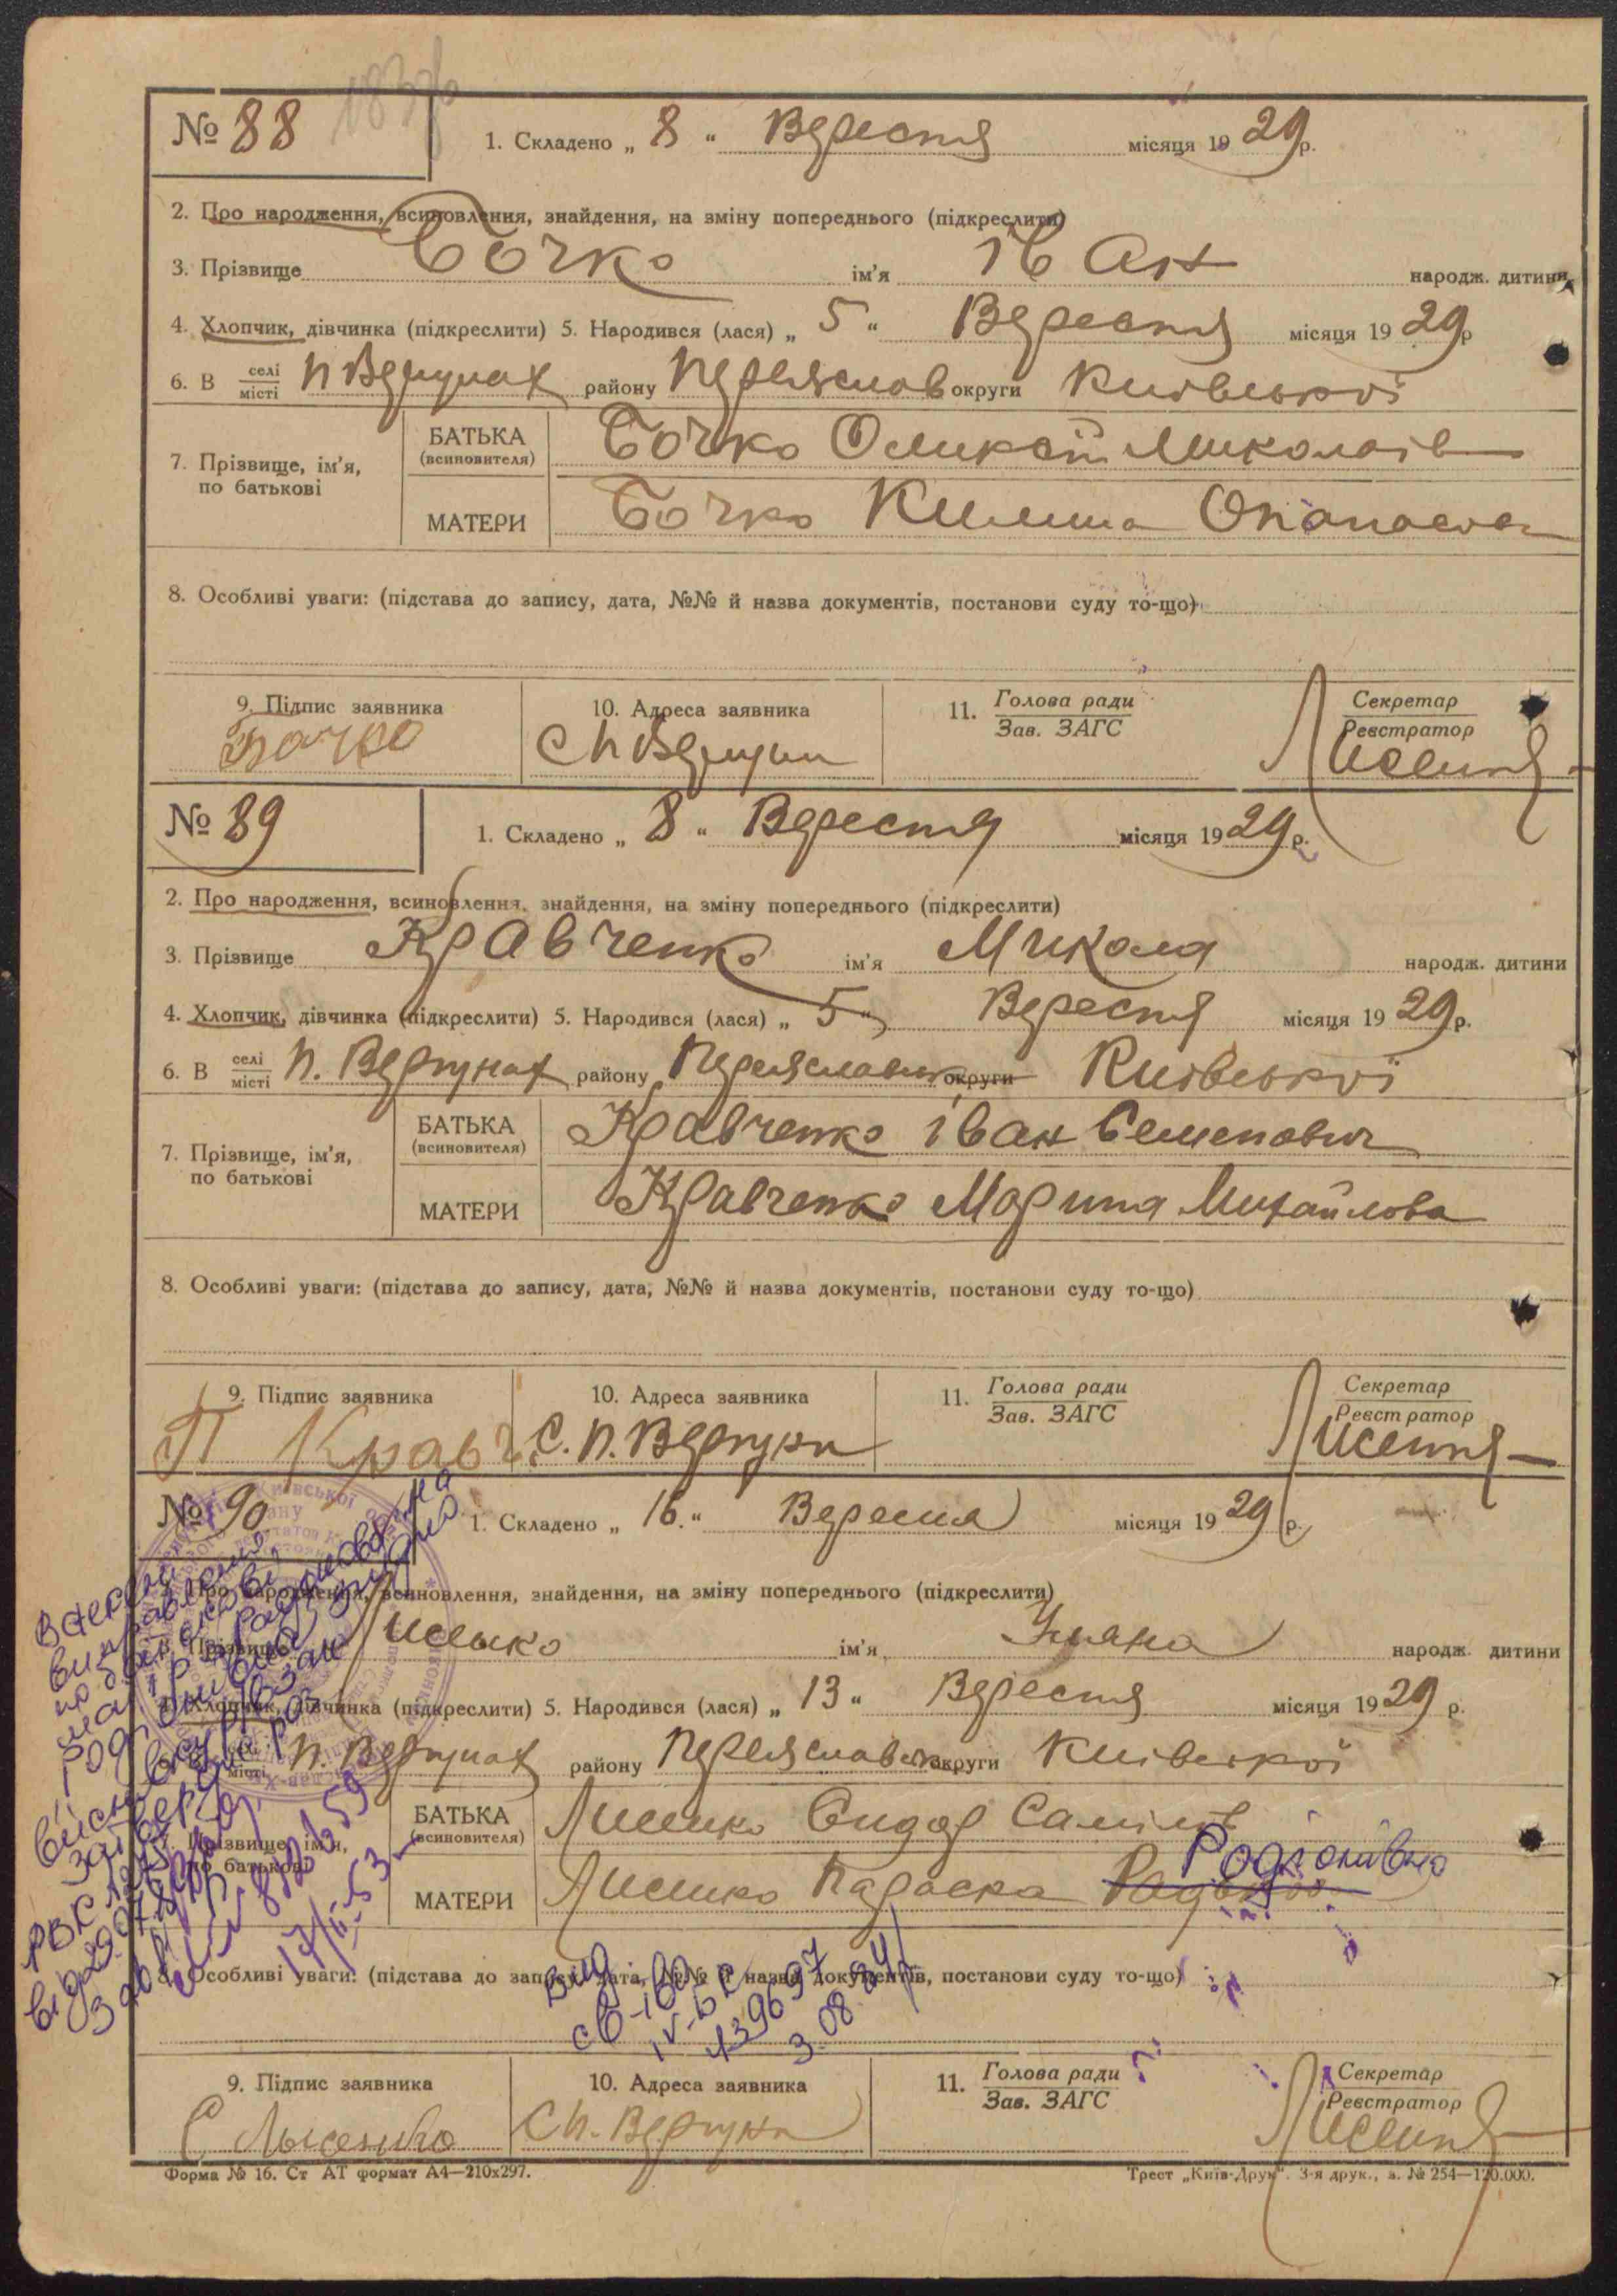 № 88
1. Складено „ 8 “ Вересня місяця 19 29 р.
2. Про народження, всиновлення, знайдення, на зміну попереднього (підкреслити)
3. Прізвище Бочко ім'я Іван народж. дитини
4. Хлопчик, дівчинка (підкреслити) 5. Народився (лася) „ 5 “ Вересня місяця 19 29 р
6. В селі місті П Вергунах району Переяслав округи Київської
7. Прізвище, ім'я, по батькові
БАТЬКА (всиновителя) Бочко Миколаїв
МАТЕРИ Бочко Килина
8. Особливі уваги: (підстава до запису, дата, №№ й назва документів, постанови суду то-що)
9. Підпис заявника 10. Адреса заявника 11. Голова ради Зав. ЗАГС Секретар Реєстратор
Бочко С П Вергуни
№ 89
1. Складено „ 8 “ Вересня місяця 19 29 р.
2. Про народження, всиновлення, знайдення, на зміну попереднього (підкреслити)
3. Прізвище Кравченко ім'я Микола народж. дитини
4. Хлопчик, дівчинка (підкреслити) 5. Народився (лася) „ 5 “ Вересня місяця 19 29 р.
6. В селі місті П. Вергунах району округи Київської
7. Прізвище, ім'я, по батькові
БАТЬКА (всиновителя) Кравченко Іван Семенович
МАТЕРИ Кравченко Марина Михайлова
8. Особливі уваги: (підстава до запису, дата, №№ й назва документів, постанови суду то-що)
9. Підпис заявника 10. Адреса заявника 11. Голова ради Зав. ЗАГС Секретар Реєстратор
П Кравч. С. П. Вергуни
№ 90
1. Складено „ 16. “ Вересня місяця 19 29 р.
2. Про народження, всиновлення, знайдення, на зміну попереднього (підкреслити)
3. Прізвище Лисенко ім'я Уляна народж. дитини
4. Хлопчик, дівчинка (підкреслити) 5. Народився (лася) „ 13 “ Вересня місяця 19 29 р.
місті П. Вергунах району Переяславськ округи Київської
7. Прізвище, ім'я, по батькові
БАТЬКА (всиновителя) Лисенко Сидор
Родіонівна
МАТЕРИ Лисенко Параска
8. Особливі уваги: (підстава до запису, дата, №№ й назва документів, постанови суду то-що)
9. Підпис заявника 10. Адреса заявника 11. Голова ради Зав. ЗАГС Секретар Реєстратор
С Лысенко С П. Вергуни
Форма № 16. Ст АТ формат А4—210х297. Трест „Київ-Друк“. 3-я друк., з. № 254—120.000.